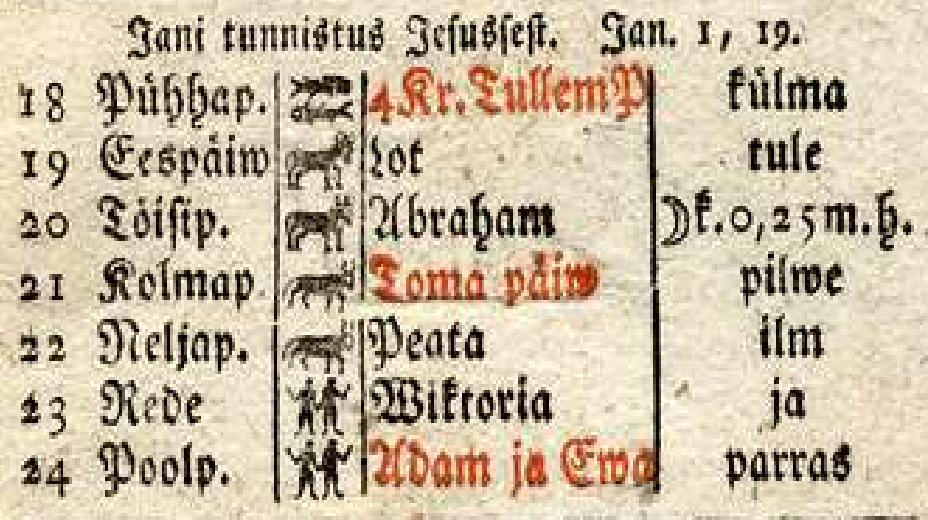 Jani tunnistus Jesussest. Jan. 1, 19.
18 Pühhap. 4 Kr. TullemP külma
19 Eespäiw Lot tule
20 Töisip. Abraham ☽k.0,25m.h.
21 Kolmap. Toma päiw pilwe
22 Neljap. Peata ilm
23 Rede Wiktoria ja
24 Poolp. Adam ja Ewa parras